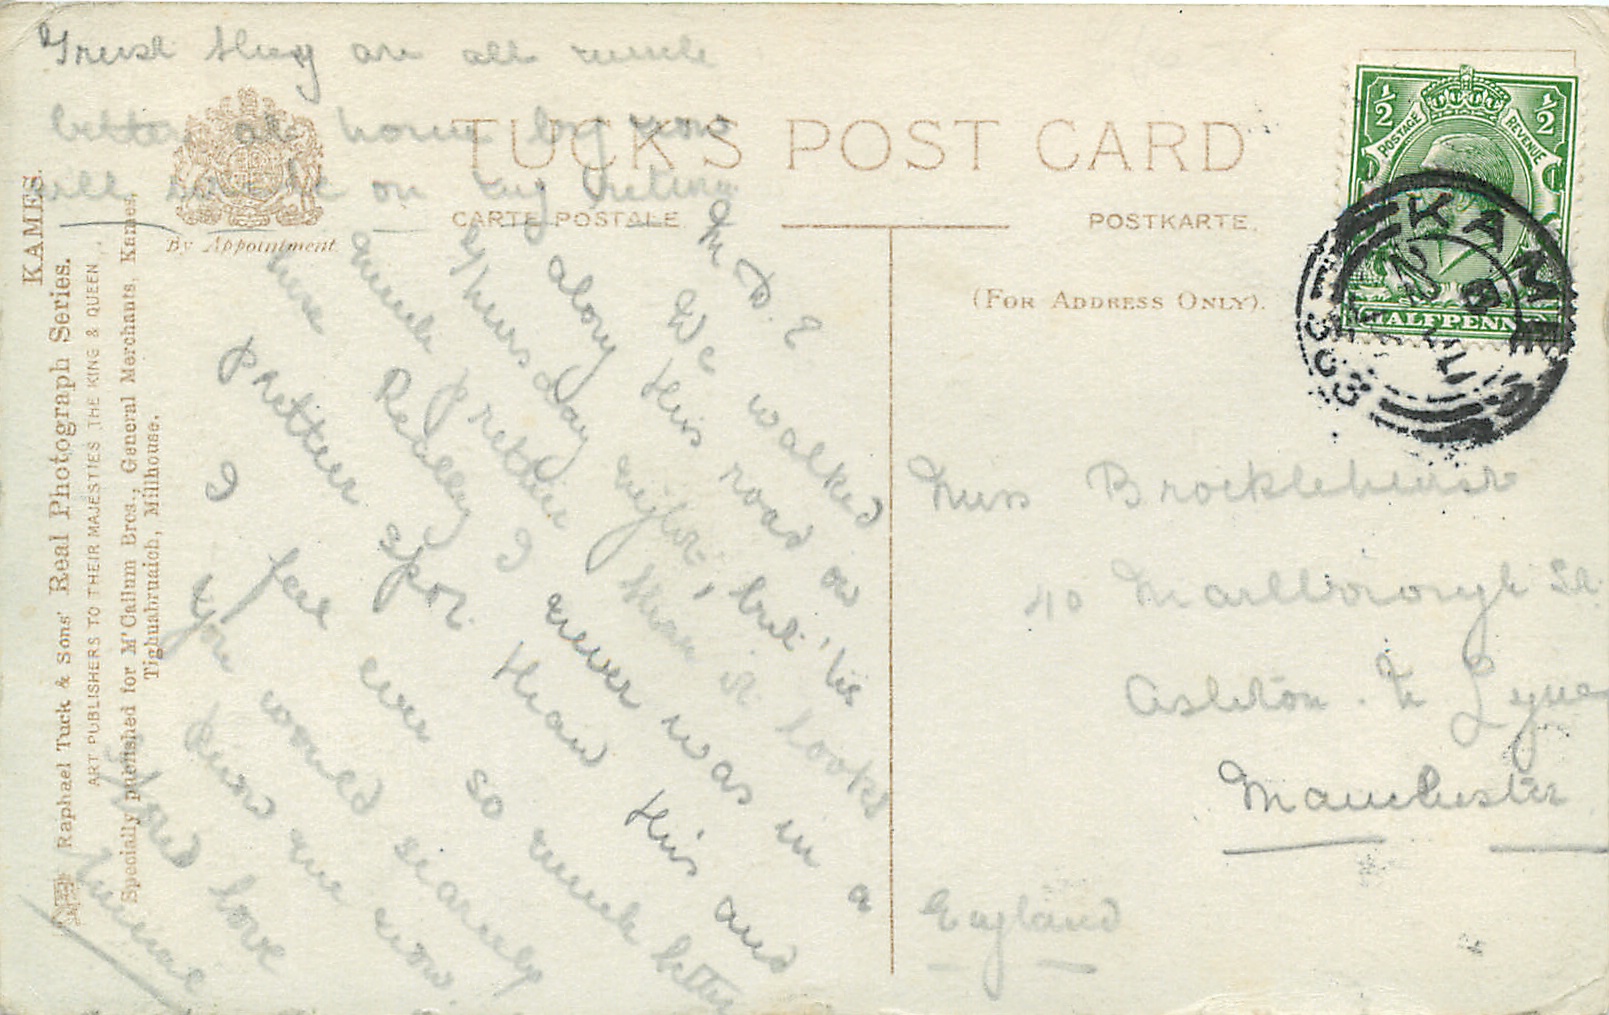 Trust they are all much
better at home by now
will write on my return
TUCK'S POST CARD
CARTE POSTALE
POSTKARTE.
By Appointment
(FOR ADDRESS ONLY).
KAMES.
Raphael Tuck & Sons' Real Photograph Series.
ART PUBLISHERS TO THEIR MAJESTIES THE KING & QUEEN.
Specially published for M'Callum Bros., General Merchants, Kames,
Tighnabruaich, Millhouse.
M D. E
We walked
along this road on
Thursday night, but 'tis
much prettier than it looks
here Really I never was in a
prettier spot than this and
I feel ever so much better
you would scarcely
know me now.
Fond love
Minnie
½ ½
POSTAGE REVENUE
HALFPENNY
KAMES
Miss Brocklehurst
40 Marlborough St
Ashton. U Lyne
Manchester
England